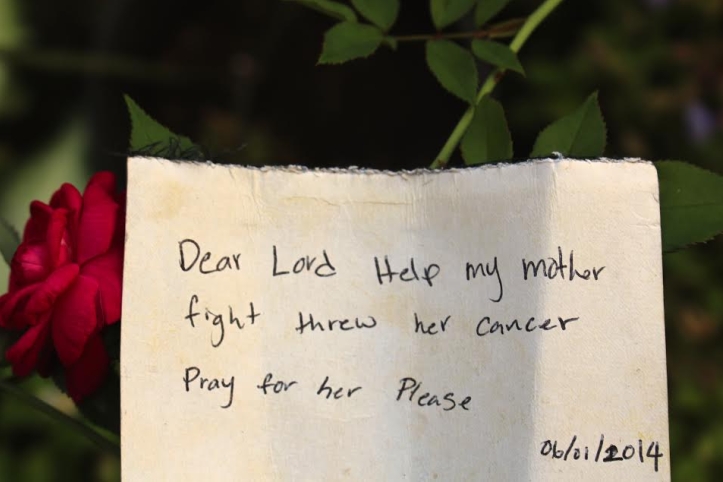 Dear Lord Help my mother
fight threw her cancer
Pray for her Please
06/01/2014